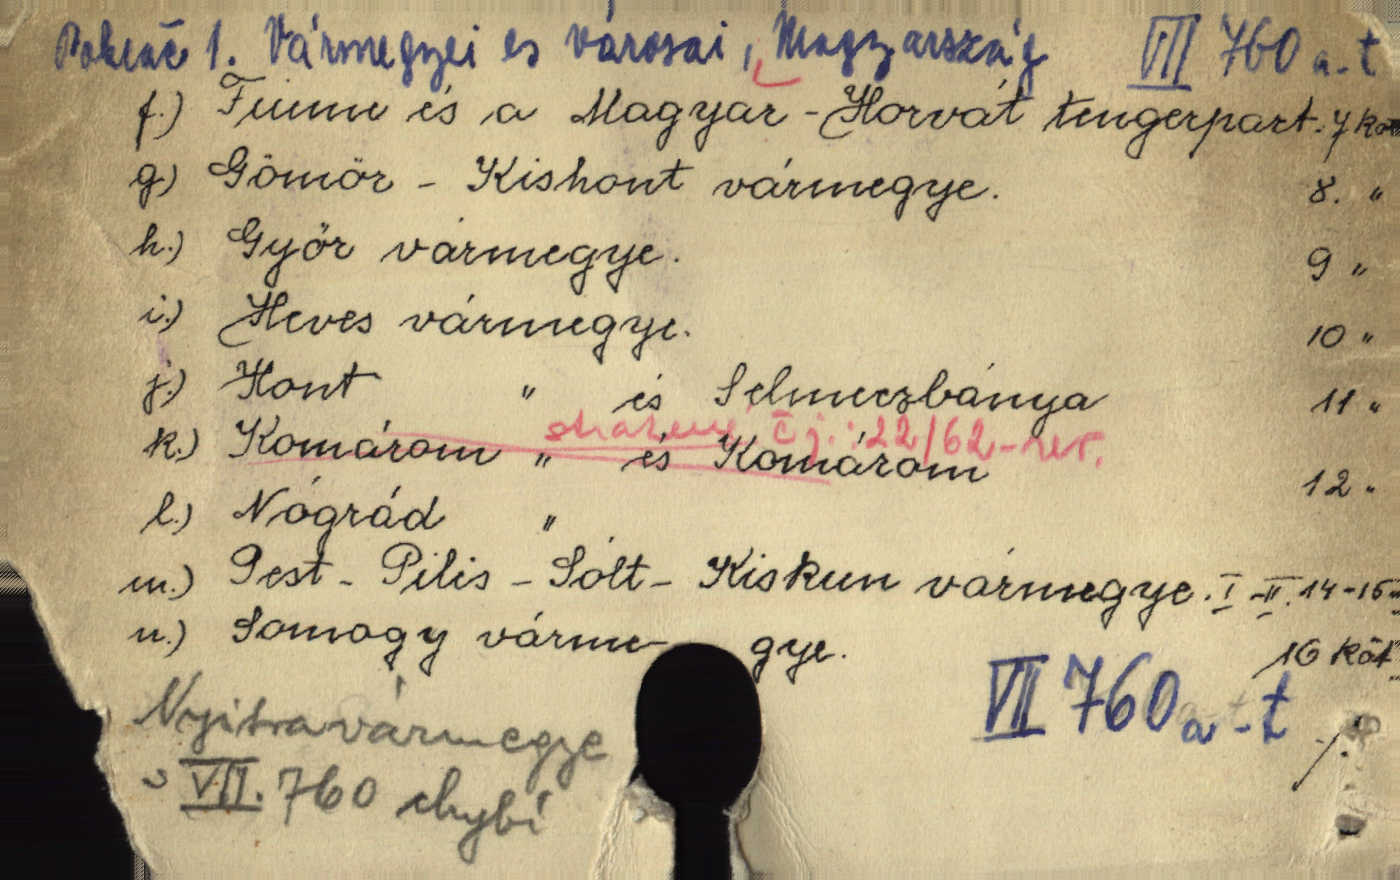 Pokrač 1. Vármegyei es városai, Magyarszág VII 760 a-t
f.) Fiume és a Magyar - Horvát tengerpart. 7 köt
g.) Gömör - Kishont vármegye. 8. "
h.) Győr vármegye. 9 "
i.) Heves vármegye. 10 "
j.) Hont " és Selmeczbánya 11 "
č.j.: 22/62-rev.
k.) Komárom " és Komárom 12 "
l.) Nógrád "
m.) Pest - Pilis - Sólt - Kiskun vármegye. I-II. 14-15 "
n.) Somogy várme- gye. 16 köt.
VII 760 a-t
Nyitravármegye
VII. 760 chybí